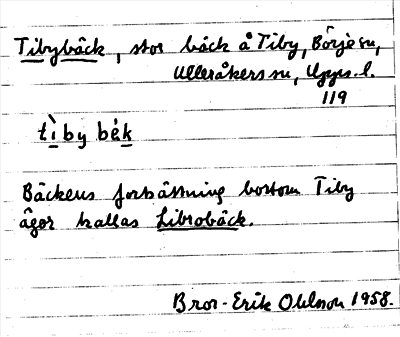 Tibybäck, stor bäck å Tiby, Börje sn,
Ulleråkers sn, Upps. l.
119
tìby bék
Bäckens fortsättning bortom Tiby
ägor kallas Librobäck.
Bror-Erik Ohlson 1958.